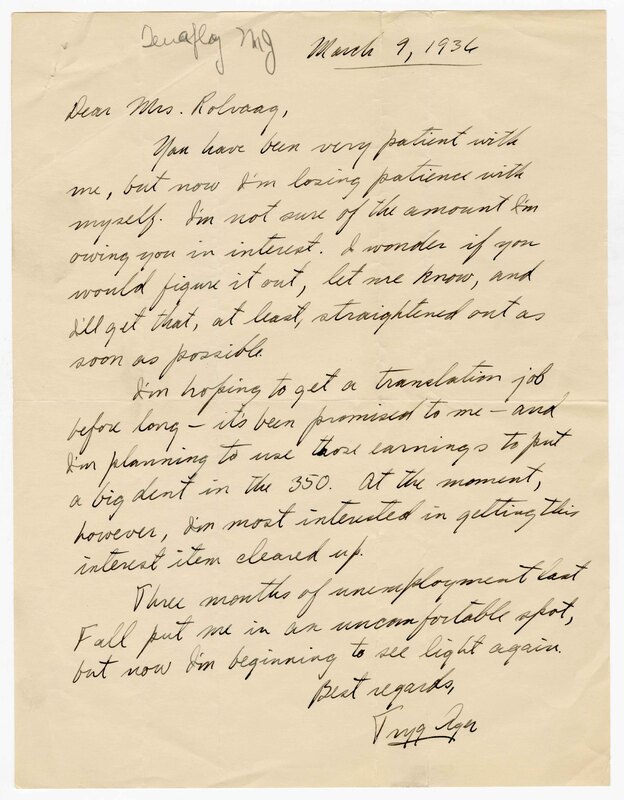 Tenafloy NJ
March 9, 1936
Dear Mrs. Rolvaag,
You have been very patient with
me, but now I'm losing patience with
myself. I'm not sure of the amount I'm
owing you in interest. I wonder if you
would figure it out, let me know, and
I'll get that, at least, straightened out as
soon as possible.
I'm hoping to get a translation job
before long – it's been promised to me – and
I'm planning to use those earnings to put
a big dent in the 350. At the moment,
however, I'm most interested in getting this
interest item cleared up.
Three months of unemployment last
Fall put me in an uncomfortable spot,
but now I'm beginning to see light again.
Best regards,
Tryg Ager